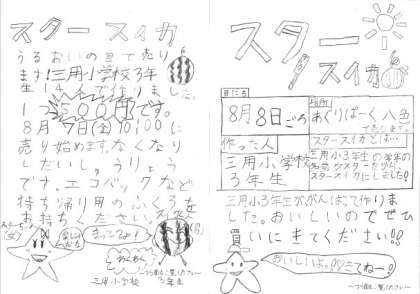 スター スイカ
うるおいの里で売り
ます!三用小学校3年
生14人で作りました。
1こ500円です。
8月7日(金)10:00に
売り始めます。なくなり
しだいし。うりょう
です。エコバックなど
持ち帰り用のふくろを
お持ちください。
買ってね!
まってるよ!
三用小学校
3年生
スター
スイカ
日にち
8月8日ごろ
場所
あぐりぱーく八色
で売ります
作った人
三用小学校
3年生
スタースイカとは…
三用小3年生の学年の
名前がスターだから
スタースイカにしました!
三用小3年生ががんばって作り
ました。おいしいのでぜひ
買いにきてください!!
おいしいよ。
きてねー!